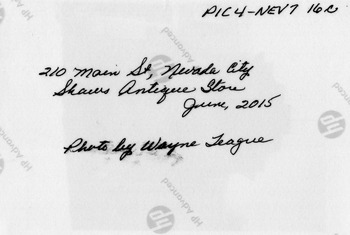 PIC4-NEV7 16c
210 Main St, Nevada City
Shaws Antique Store
June, 2015
Photo by Wayne League
hp Advanced
hp Advanced
hp Advanced
hp Advanced